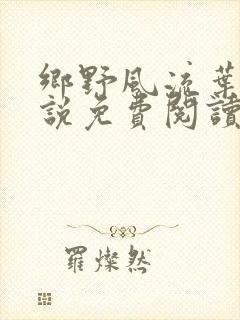 鄉野風流葉
說免費閱讀
羅燦然